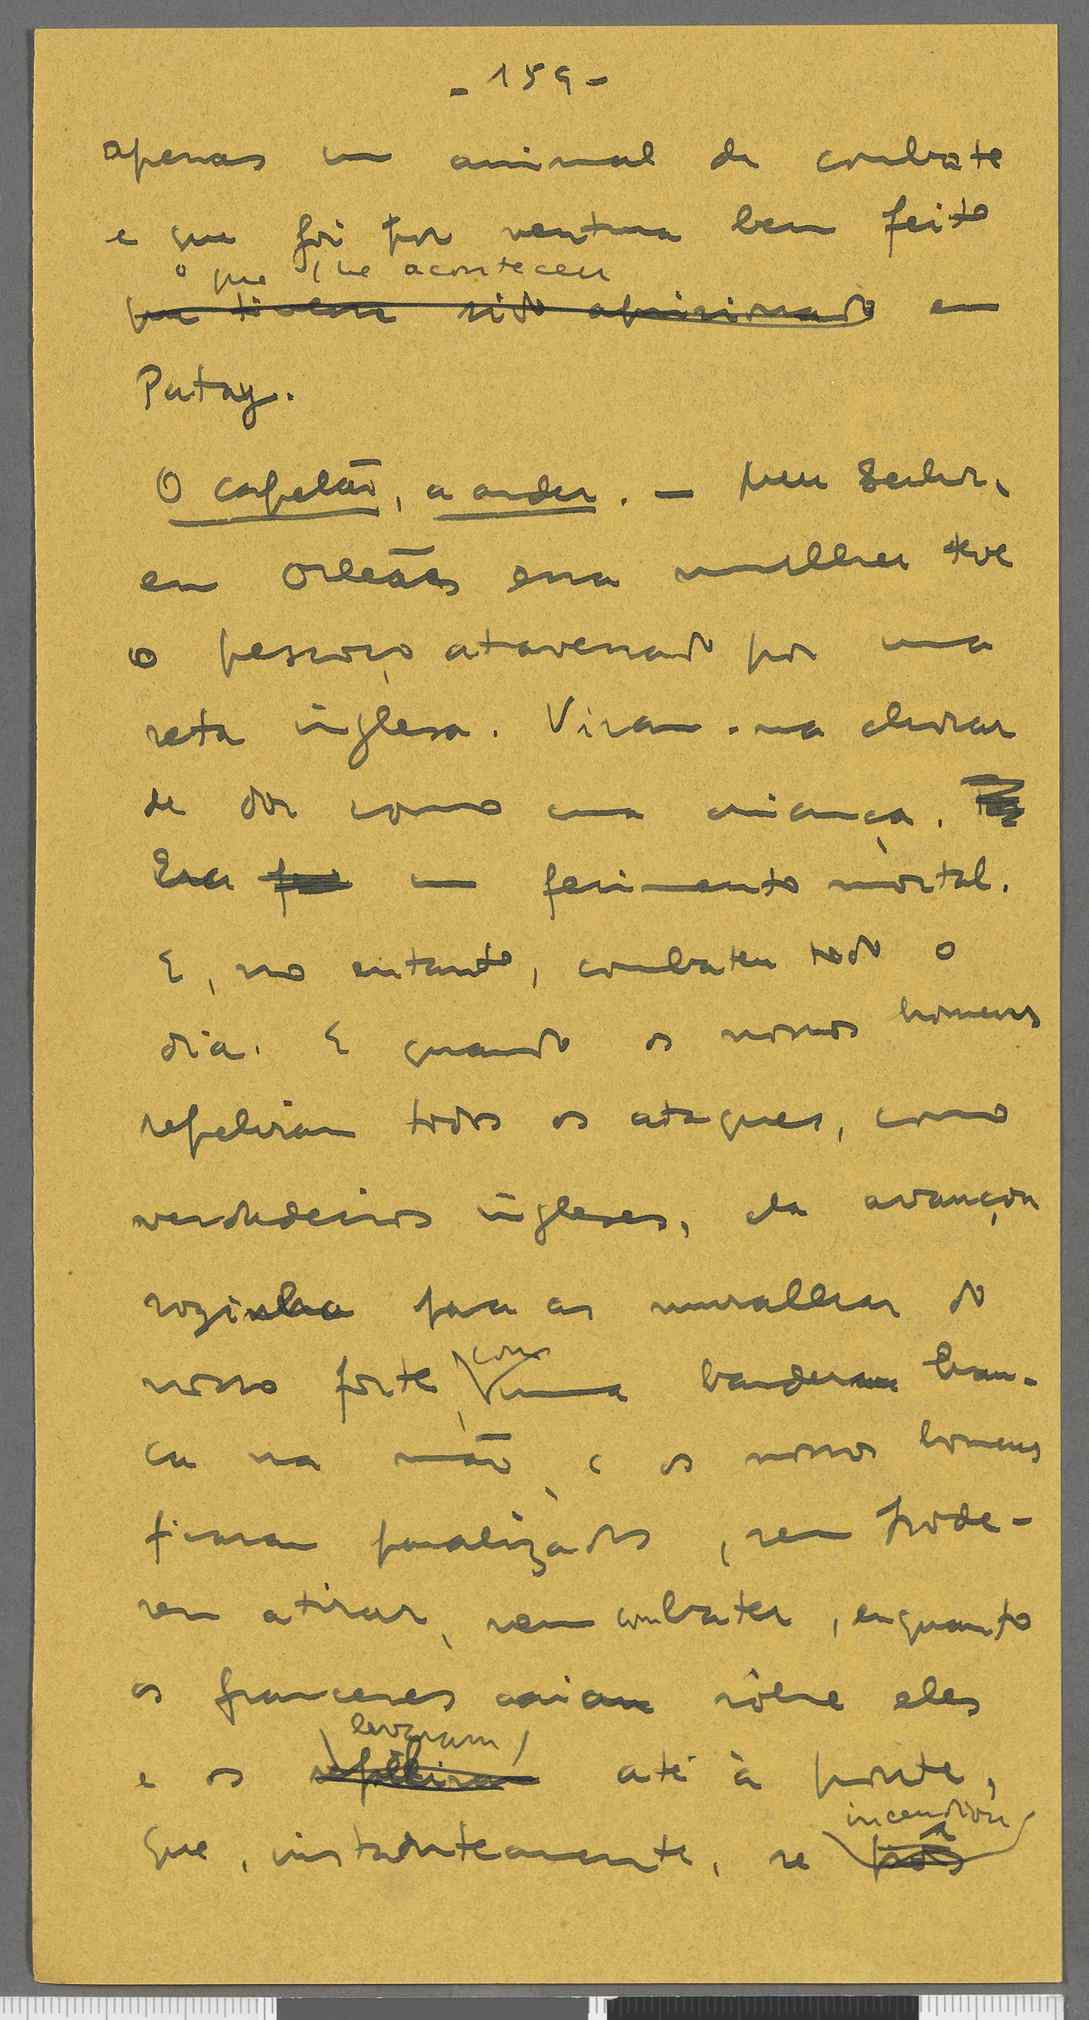 - 159 -
apenas um animal de combate
e que foi por ventura bem feito
o que lhe aconteceu
que tivesse sido aprisionado em
Patay.
O capelão, a arder. — Meu Senhor,
em Orleães essa mulher teve
o pescoço atravessado por uma
seta inglesa. Viram-na chorar
de dor como uma criança.
Era um ferimento mortal.
E, no entanto, combateu todo o
dia. E quando os nossos homens
repeliram todos os ataques, como
verdadeiros ingleses, ela avançou
sozinha para as muralhas do
nosso forte, com
uma bandeira bran-
ca na mão, e os nossos homens
ficaram paralizados, sem pode-
rem atirar, nem combater, enquanto
os franceses caiam sôbre eles
levaram
e os repeliram até à ponte,
incendiou
que, instantâneamente, se pôs